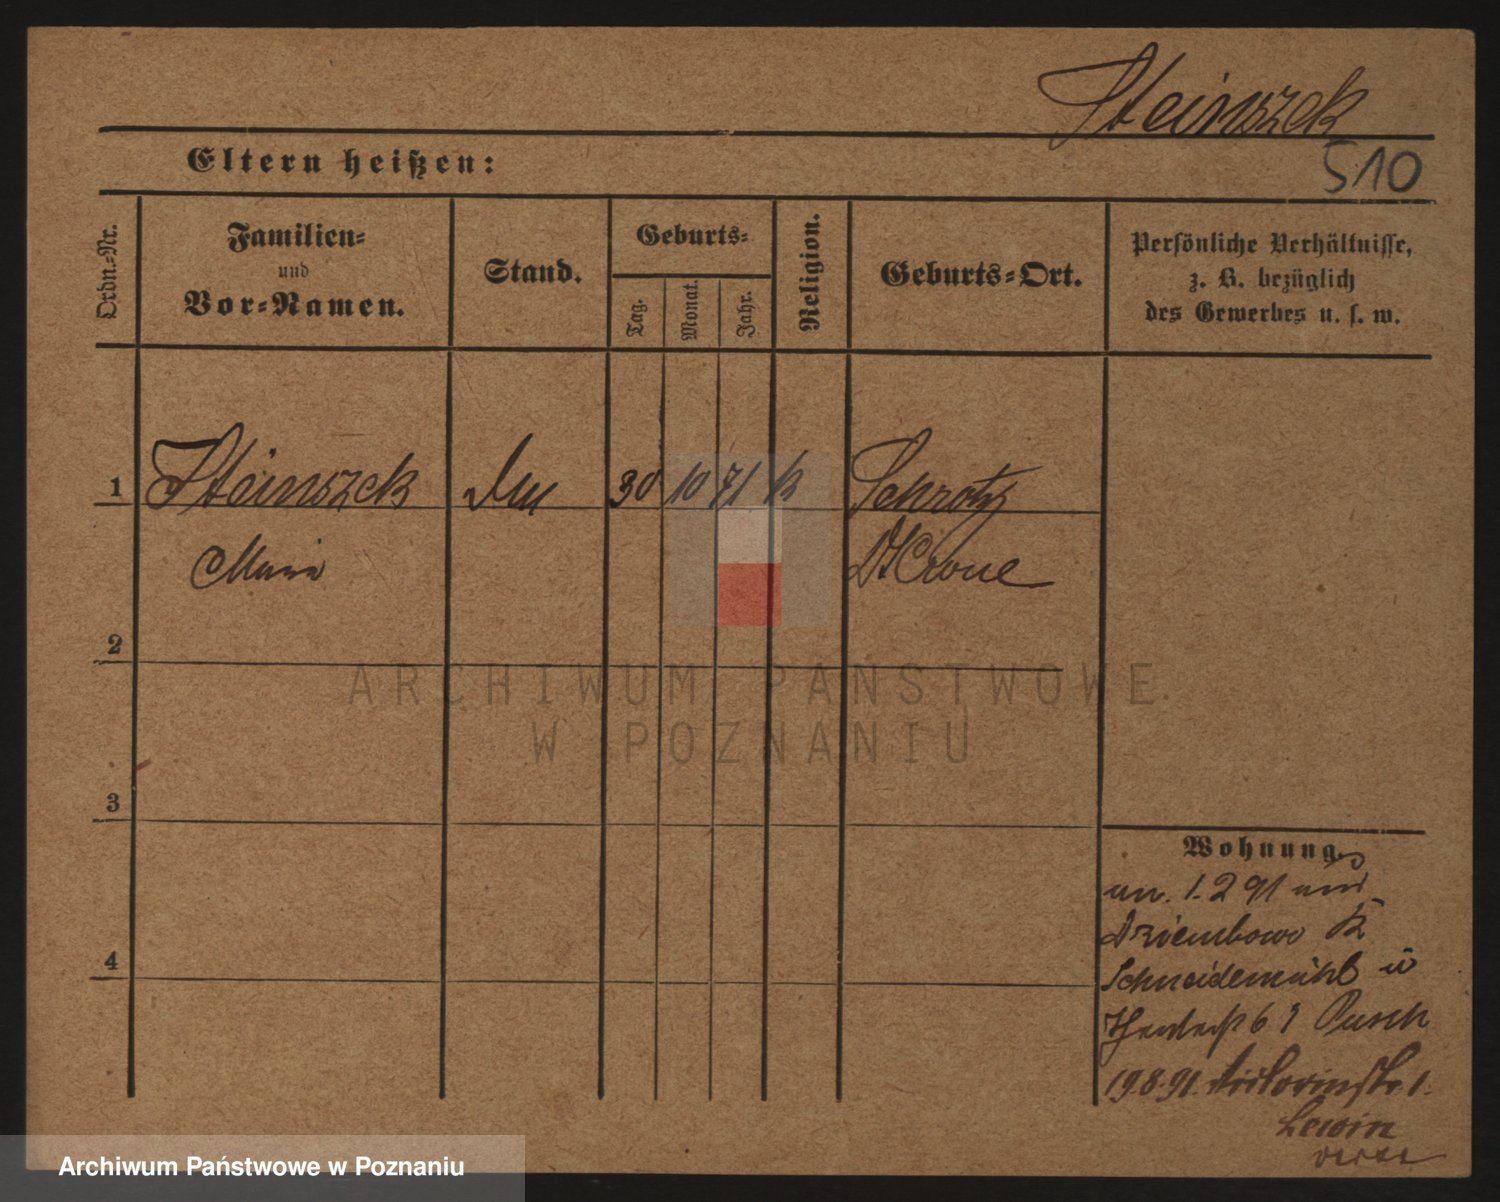 Steinszek
510
Eltern heißen:
Ordn.-Nr.
Familien-
und
Vor-Namen.
Stand.
Geburts-
Tag.
Monat.
Jahr.
Religion.
Geburts-Ort.
Persönliche Verhältnisse,
z. B. bezüglich
des Gewerbes u. s. w.
1 Steinszek 30 10 71 k Schrotz
Maria Dt Crone
2
3
4
Wohnung.
an. 1. 2 91 aus
Dziembowo K
Schneidemühl
6 Pusch
19.8.91. 1.
Lewin
ARCHIWUM PAŃSTWOWE
W POZNANIU
Archiwum Państwowe w Poznaniu